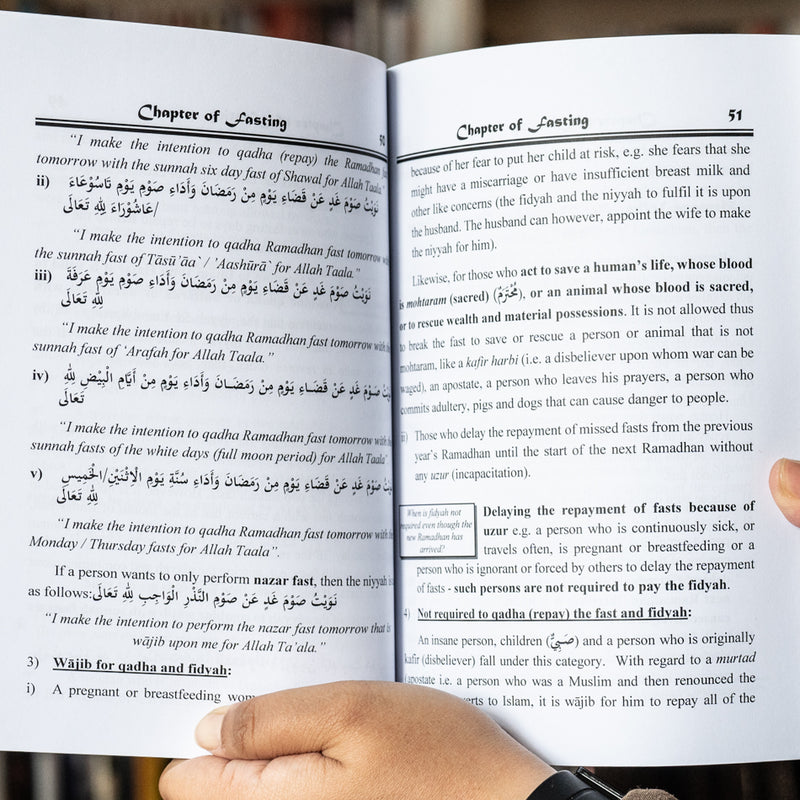 Chapter of Fasting
50
"I make the intention to qadha (repay) the Ramadhan fast
tomorrow with the sunnah six day fast of Shawal for Allah Taala."
ii) نَوَيْتُ صَوْمَ غَدٍ عَنْ قَضَاءِ يَوْمٍ مِنْ رَمَضَانَ وَأَدَاءِ صَوْمِ يَوْمِ تَاسُوْعَاءَ
/عَاشُوْرَاءَ لِلّٰهِ تَعَالَى
"I make the intention to qadha Ramadhan fast tomorrow with
the sunnah fast of Tāsū'āa` / 'Aashūrā` for Allah Taala."
iii) نَوَيْتُ صَوْمَ غَدٍ عَنْ قَضَاءِ يَوْمٍ مِنْ رَمَضَانَ وَأَدَاءِ صَوْمِ يَوْمِ عَرَفَةَ
لِلّٰهِ تَعَالَى
"I make the intention to qadha Ramadhan fast tomorrow with the
sunnah fast of 'Arafah for Allah Taala."
iv) نَوَيْتُ صَوْمَ غَدٍ عَنْ قَضَـاءِ يَوْمٍ مِنْ رَمَضَـانَ وَأَدَاءِ يَوْمٍ مِنْ أَيَّامِ الْبِيْضِ لِلّٰهِ
تَعَالَى
"I make the intention to qadha Ramadhan fast tomorrow with the
sunnah fasts of the white days (full moon period) for Allah Taala"
v) نَوَيْتُ صَوْمَ غَدٍ عَنْ قَضَاءِ يَوْمٍ مِنْ رَمَضَانَ وَأَدَاءِ سُنَّةِ يَوْمِ الْاِثْنَيْنِ/الْخَمِيسِ
لِلّٰهِ تَعَالَى
"I make the intention to qadha Ramadhan fast tomorrow with the
Monday / Thursday fasts for Allah Taala".
If a person wants to only perform nazar fast, then the niyyah is
as follows: نَوَيْتُ صَوْمَ غَدٍ عَنْ صَوْمِ النَّذْرِ الْوَاجِبِ لِلّٰهِ تَعَالَى
"I make the intention to perform the nazar fast tomorrow that is
wājib upon me for Allah Ta'ala."
3) Wājib for qadha and fidyah:
i) A pregnant or breastfeeding
Chapter of Fasting
51
because of her fear to put her child at risk, e.g. she fears that she
might have a miscarriage or have insufficient breast milk and
other like concerns (the fidyah and the niyyah to fulfil it is upon
the husband. The husband can however, appoint the wife to make
the niyyah for him).
Likewise, for those who act to save a human's life, whose blood
is mohtaram (sacred) (مُحْتَرَمٌ), or an animal whose blood is sacred,
or to rescue wealth and material possessions. It is not allowed thus
to break the fast to save or rescue a person or animal that is not
mohtaram, like a kafir harbi (i.e. a disbeliever upon whom war can be
waged), an apostate, a person who leaves his prayers, a person who
commits adultery, pigs and dogs that can cause danger to people.
ii) Those who delay the repayment of missed fasts from the previous
year's Ramadhan until the start of the next Ramadhan without
any uzur (incapacitation).
When is fidyah not
required even though the
new Ramadhan has
arrived?
Delaying the repayment of fasts because of
uzur e.g. a person who is continuously sick, or
travels often, is pregnant or breastfeeding or a
person who is ignorant or forced by others to delay the repayment
of fasts - such persons are not required to pay the fidyah.
4) Not required to qadha (repay) the fast and fidyah:
An insane person, children (صَبِيٌّ) and a person who is originally
kafir (disbeliever) fall under this category. With regard to a murtad
(apostate i.e. a person who was a Muslim and then renounced the
to Islam, it is wājib for him to repay all of the